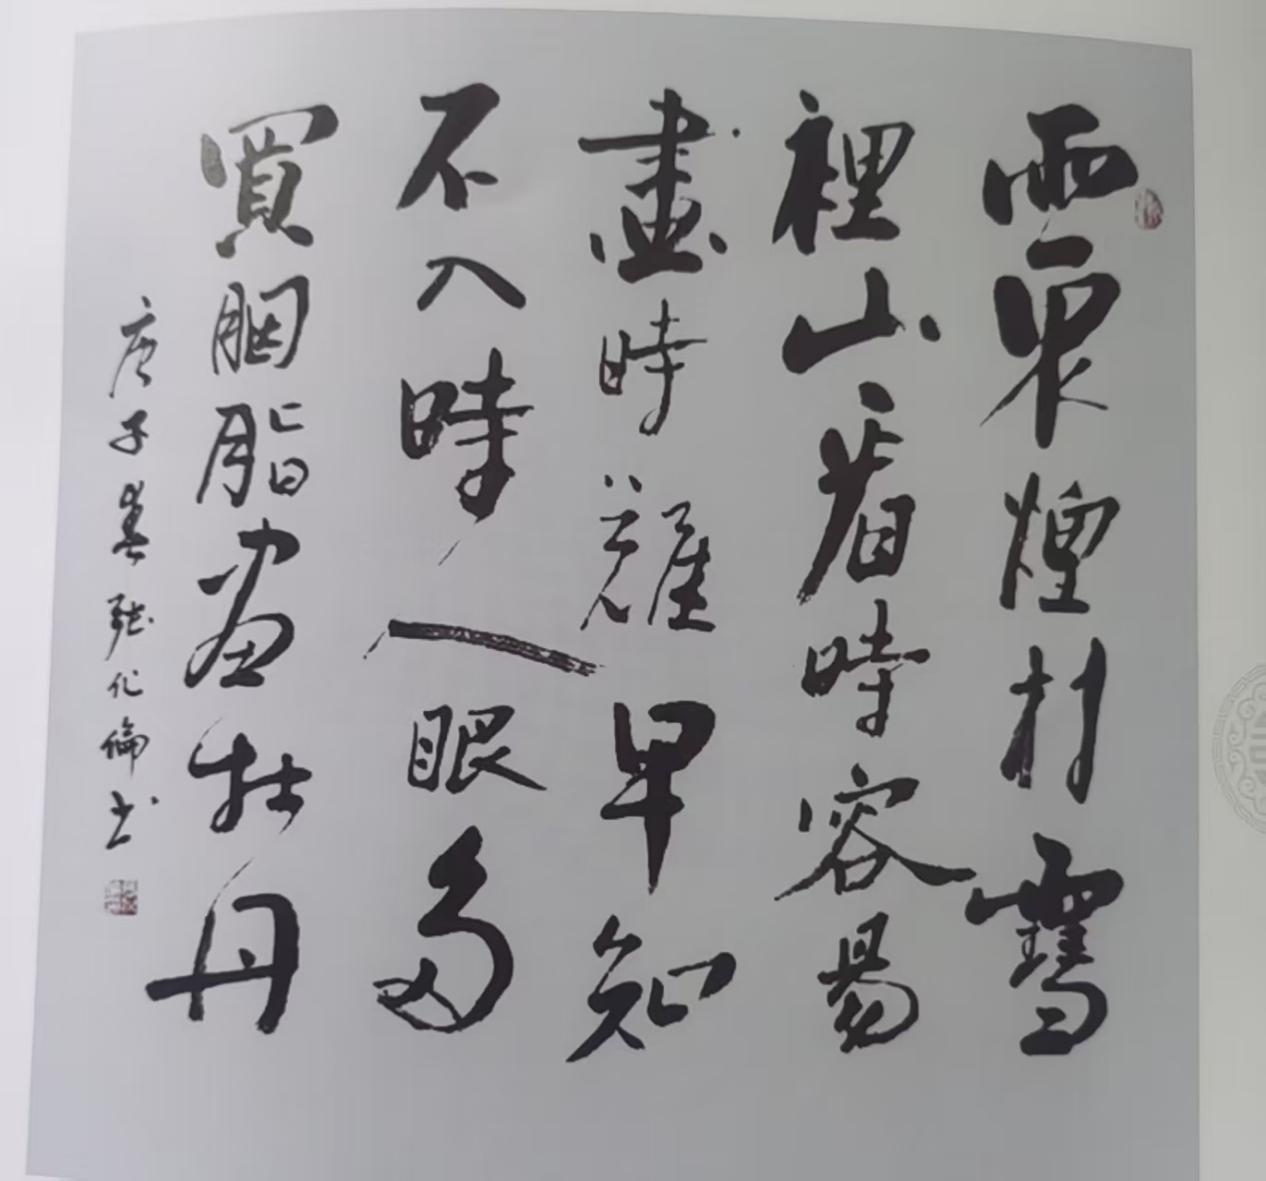 雨裏煙村雪
裡山看時容易
畫時難早知
不入時人眼多
買胭脂畫牡丹
庚子春張化倫书